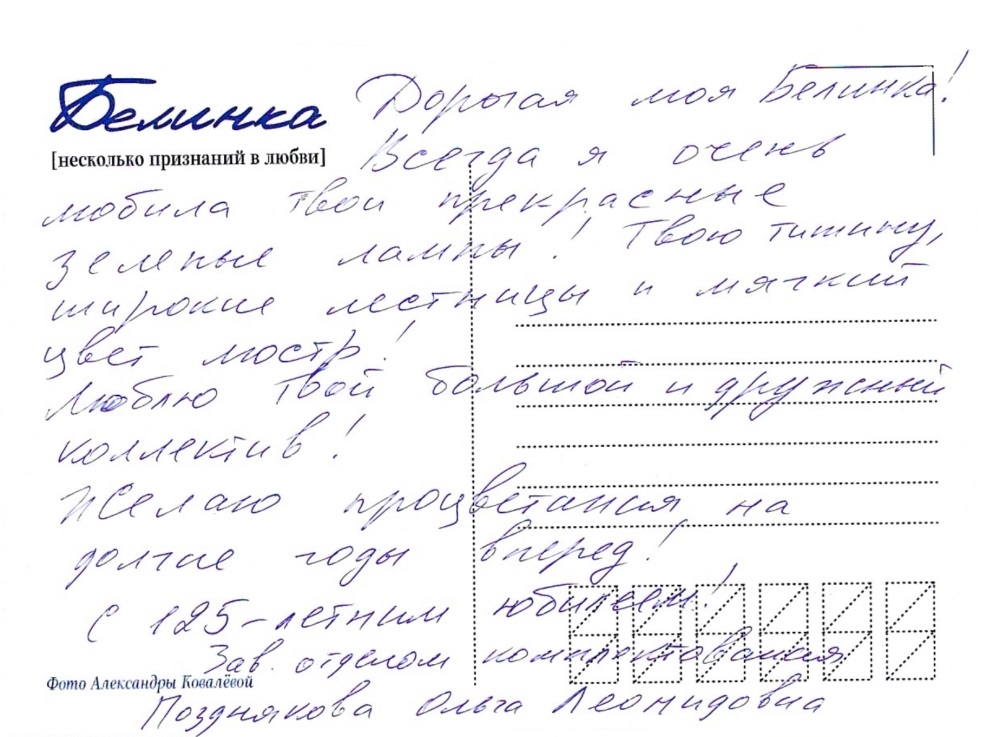 Белинка
[несколько признаний в любви]
Дорогая моя Белинка!
Всегда я очень
любила твои прекрасные
зеленые лампы! Твою тишину,
широкие лестницы и мягкий
цвет люстр!
Люблю твой большой и дружный
коллектив!
Желаю процветания на
долгие годы вперед!
С 125-летним юбилеем!
Зав. отделом комплектования
Фото Александры Ковалёвой
Позднякова Ольга Леонидовна